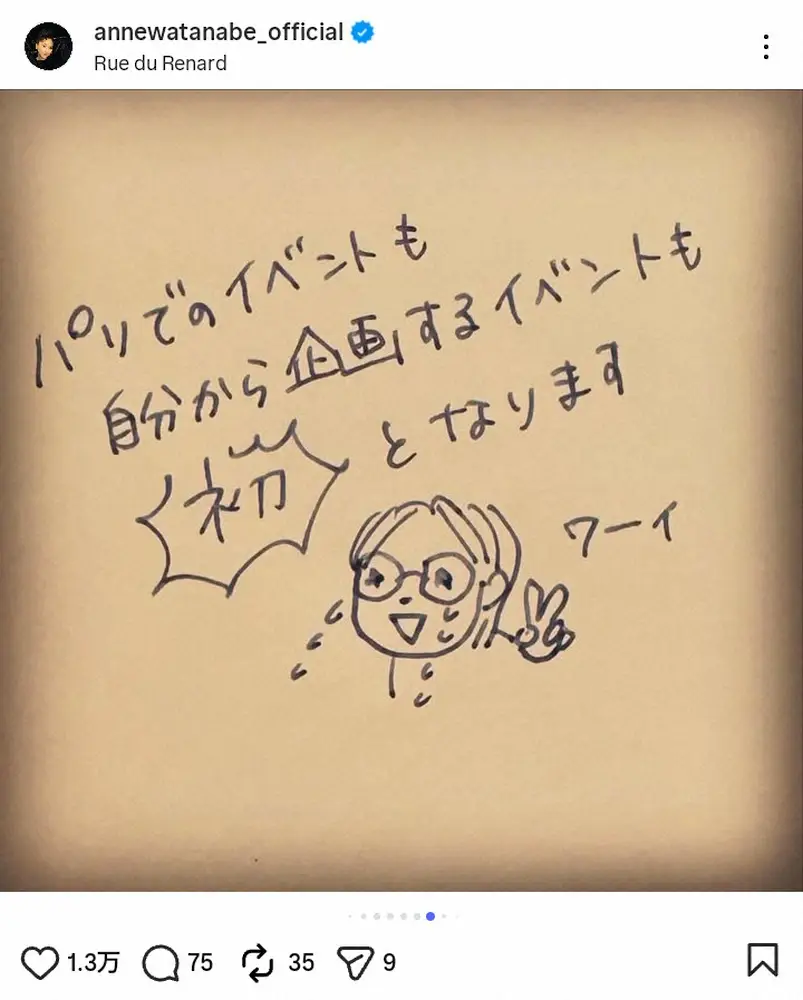 annewatanabe_official
Rue du Renard
パリでのイベントも
自分から企画するイベントも
初となります
ワーイ
1.3万 75 35 9